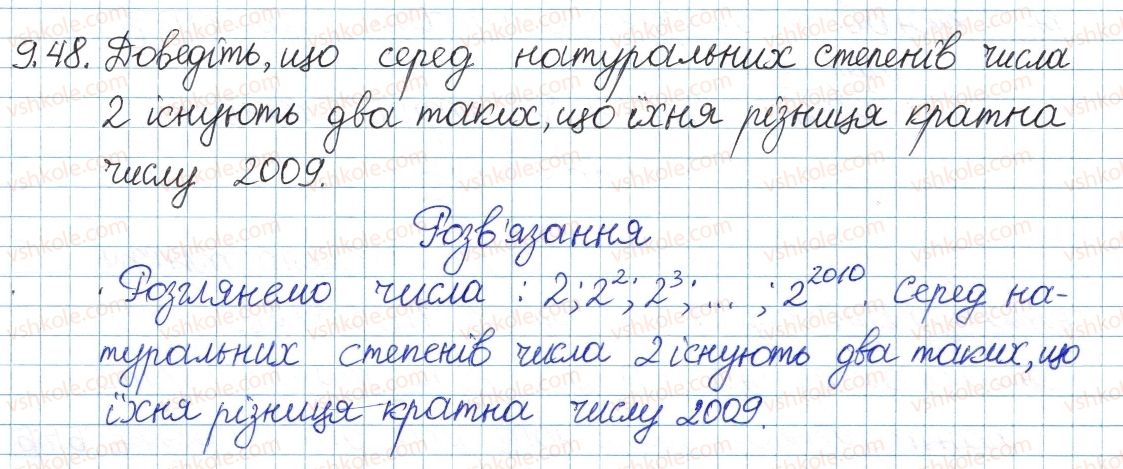 9.48. Доведіть, що серед натуральних степенів числа
2 існують два таких, що їхня різниця кратна
числу 2009.
Розв'язання
Розглянемо числа : 2; 2²; 2³; ... ; 2²⁰¹⁰. Серед на-
туральних степенів числа 2 існують два таких, що
їхня різниця кратна числу 2009.